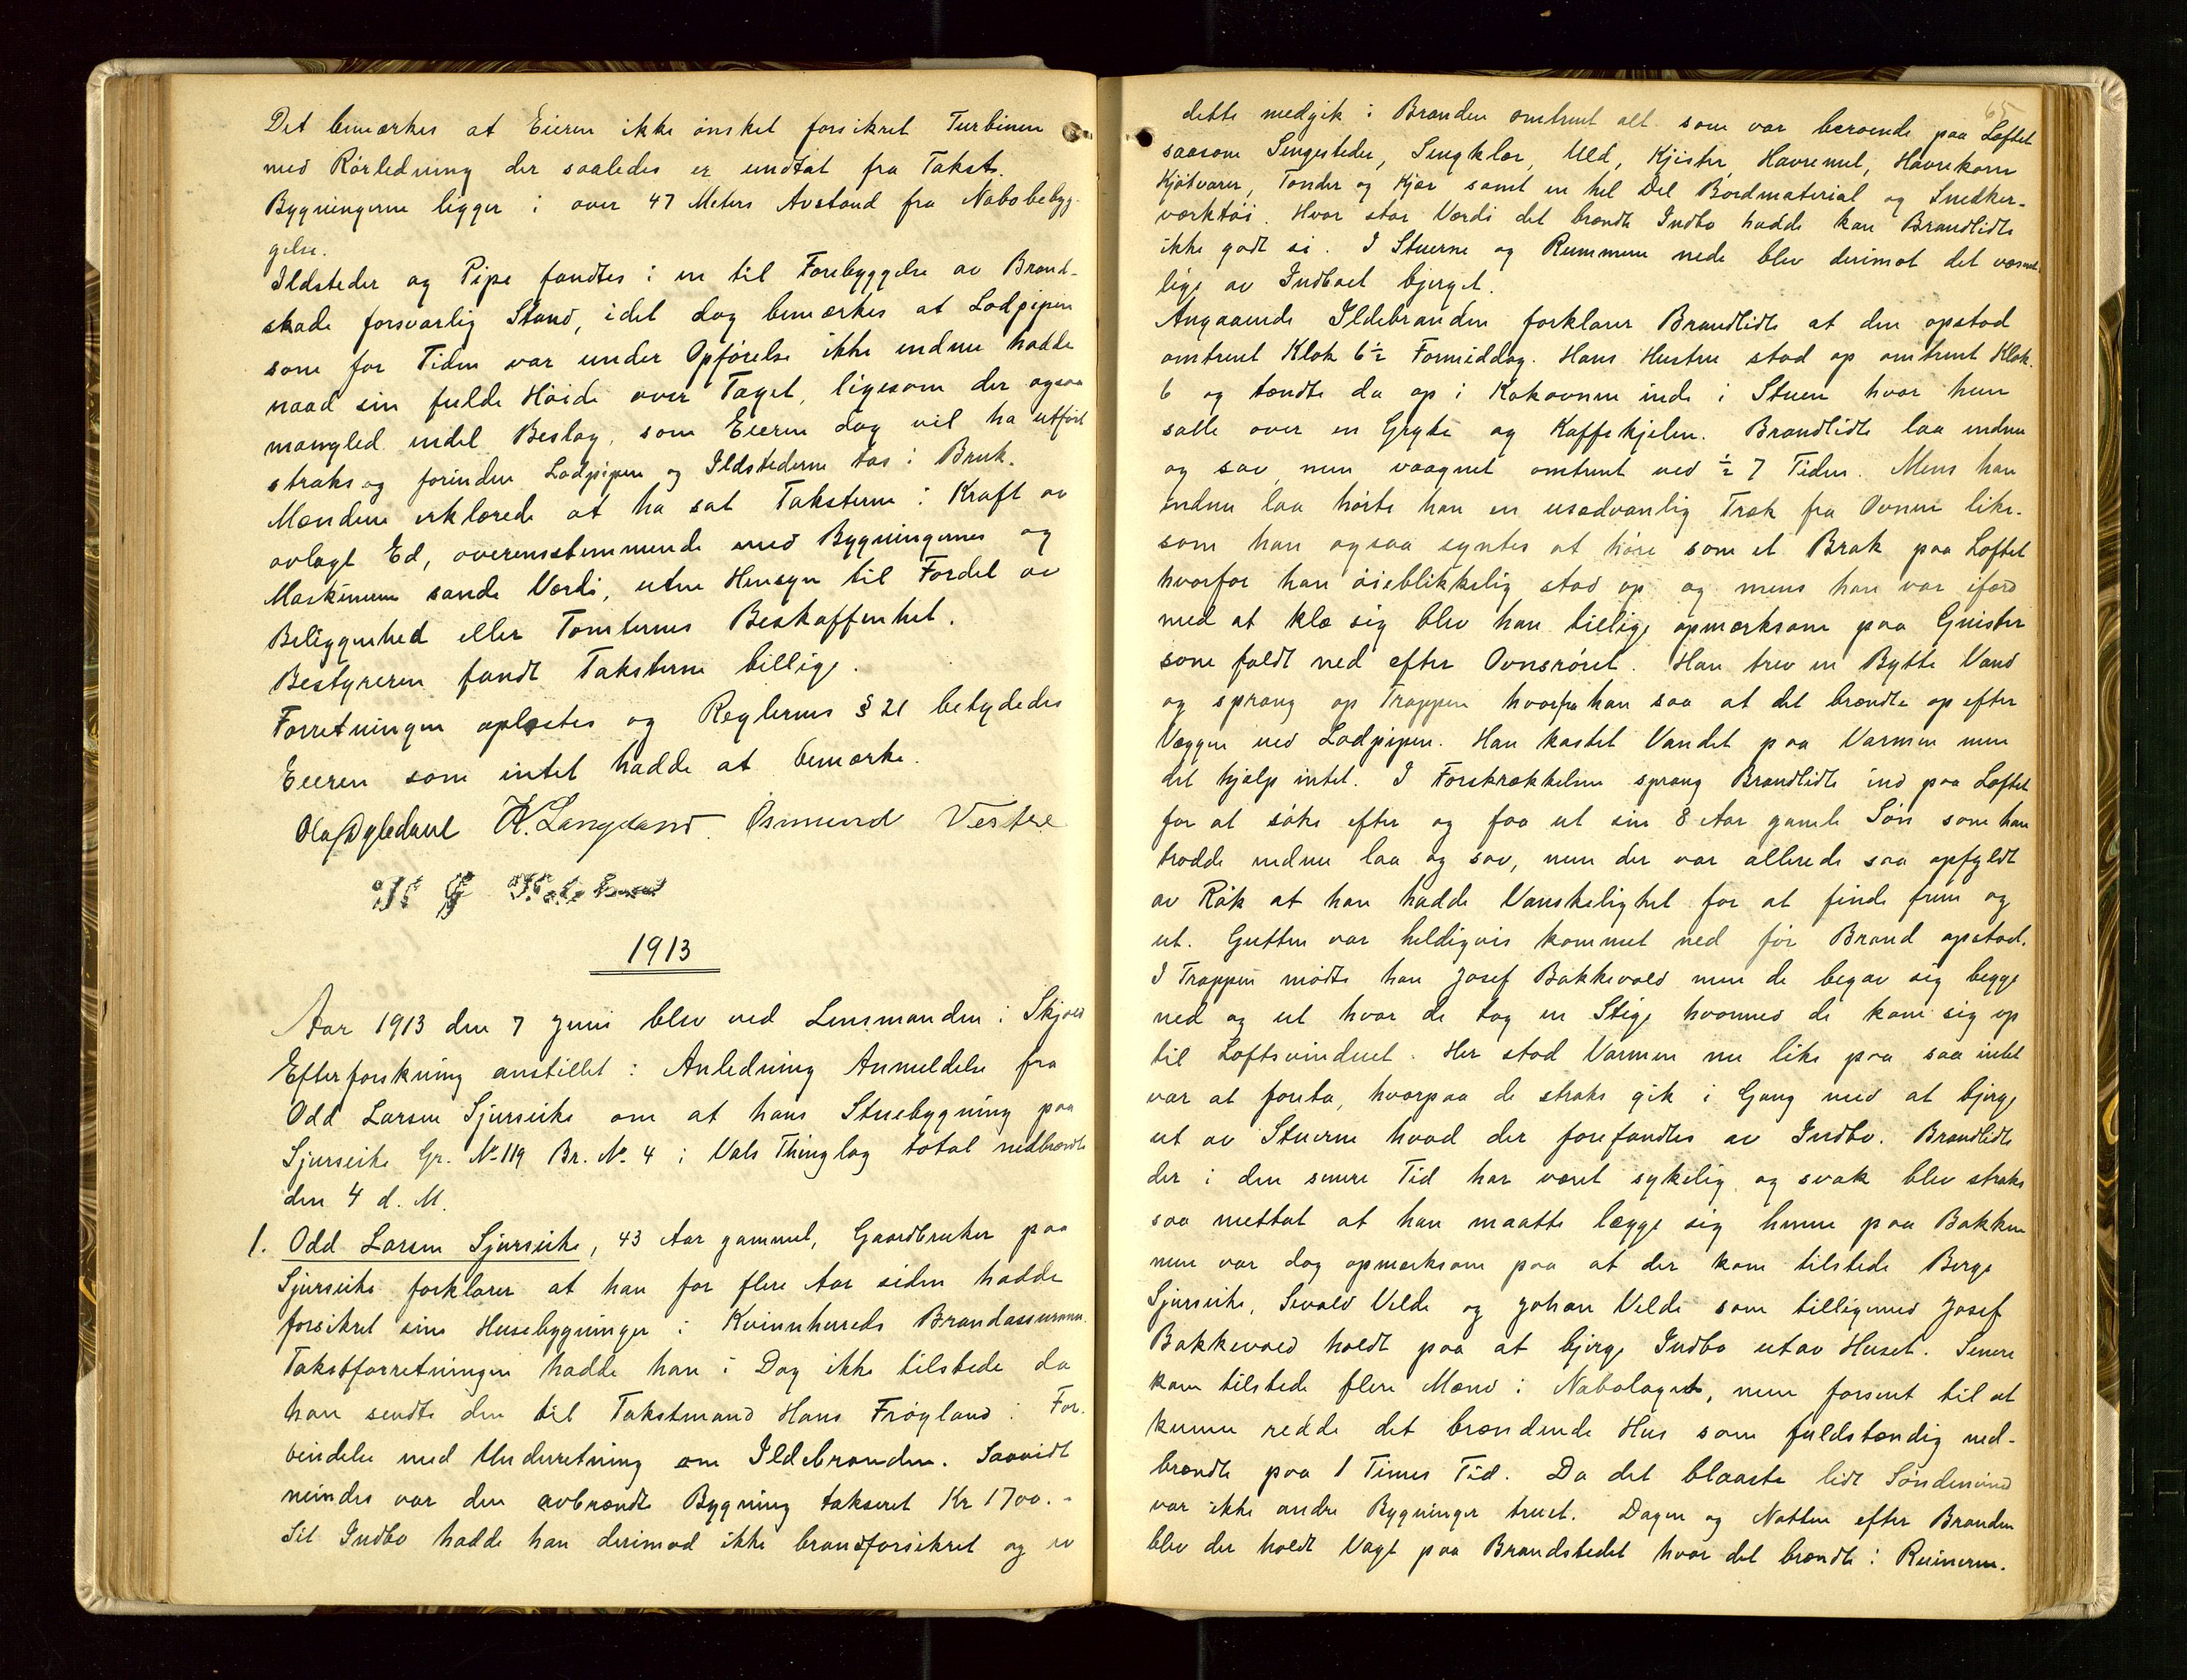 Det bemærkes at Eieren ikke ønsket forsikret Turbinen
med Rørledning der saaledes er undtat fra Takst.
Bygningerne ligger i over 47 Meters Avstand fra Nabobebyg-
gelse.
Ildsteder og Pipe fandtes i en til Forebyggelse av Brand-
skade forsvarlig Stand, idet dog bemærkes at Lodpipen
som for Tiden var under Opførelse ikke endnu hadde
naad sin fulde Høide over Taget, ligesom der ogsaa
mangled endel Beslag, som Eieren dog vil ha utført
straks og forinden Lodpipen og Ildstederne tas i Bruk.
Mændene erklærede at ha sat Taksterne i Kraft av
avlagt Ed, overensstemmende med Bygningernes og
Maskinens sande Værdi, uten Hensyn til Fordel av
Beliggenhed eller Tomternes Beskaffenhet.
Bestyreren fandt Taksterne billige.
Forretningen oplæstes og Reglernes § 21 betydedes
Eieren som intet hadde at bemærke.
K. Langeland Osmund Vestre
1913
Aar 1913 den 7 Juni blev ved Lensmanden i Skjold
Efterforskning anstillet i Anledning Anmeldelse fra
Odd Larsen Sjurseike om at hans Stuebygning paa
Sjurseike Gr. No 119 Br. No 4 i Vats Thinglag total nedbrændte
den 4 d. M.
1. Odd Larsen Sjurseike, 43 Aar gammel, Gaardbruker paa
Sjurseike forklarer at han for flere Aar siden hadde
forsikret sine Husebygninger i Kvinnherreds Brandassurance.
Takstforretningen hadde han i Dag ikke tilstede da
han sendte den til Takstmand Hans Frøyland i For-
bindelse med Underretning om Ildebranden. Saavidt
mindes var den avbrændte Bygning takseret Kr 1700.-
Sit Indbo hadde han derimod ikke brandforsikret og av
65
dette medgik i Branden omtrent alt som var beroende paa Loftet
saasom Sengesteder, Sengklær, Uld, Kjister, Havremel, Havrekorn
Kjøtvarer, Tønder og Kjær samt en hel Del Bordmaterial og Snedker-
værktøi. Hvor stor Værdi det brændte Indbo hadde kan Brandlidte
ikke godt si. I Stuerne og Rummene nede blev derimot det væsent-
lige av Indboet bjerget.
Angaaende Ildebranden forklarer Brandlidte at den opstod
omtrent Klok 6½ Formiddag. Hans Hustru stod op omtrent Klok.
6 og tændte da op i Kokovnen inde i Stuen hvor hun
satte over en Gryte og Kaffekjelen. Brandlidte laa endnu
og sov, men vaagnet omtrent ved ½ 7 Tiden. Mens han
endnu laa hørte han en usædvanlig Træk fra Ovnen like-
som han ogsaa syntes at høre som et Brak paa Loftet
hvorfor han øieblikkelig stod op og mens han var ifærd
med at klæ sig blev han tillige opmærksom paa Gnister
som faldt ned efter Ovnsrøret. Han trev en Bytte Vand
og sprang op Trappen hvorfra han saa at det brændte op efter
Væggen ved Lodpipen. Han kastet Vandet paa Varmen men
det hjalp intet. I Forskrækkelsen sprang Brandlidte ind paa Loftet
for at søke efter og faa ut sin 8 Aar gamle Søn som han
trodde endnu laa og sov, men der var allerede saa opfyldt
av Røk at han hadde Vanskelighet for at finde frem og
ut. Gutten var heldigvis kommet ned før Brand opstod.
I Trappen mødte han Josef Bakkevold men de begav sig begge
ned og ut hvor de tog en Stige hvormed de kom sig op
til Loftsvinduet. Her stod Varmen nu like paa saa intet
var at foreta, hvorpaa de straks gik i Gang med at bjerge
ut av Stuerne hvad der forefandtes av Indbo. Brandlidte
der i den senere Tid har været sykelig og svak blev straks
saa mettat at han maatte lægge sig henne paa Bakken
men var dog opmærksom paa at der kom tilstede Berge
Sjurseike, Sevald Velde og Johan Velde som tilligemed Josef
Bakkevold holdt paa at bjerge Indbo utav Huset. Senere
kom tilstede flere Mænd i Nabolaget, men forsent til at
kunne redde det brændende Hus som fuldstændig ned-
brændte paa 1 Times Tid. Da det blaaste lidt Søndenvind
var ikke andre Bygninger truet. Dagen og Natten efter Branden
blev der holdt Vagt paa Brandstedet hvor det brændte i Ruinerne.